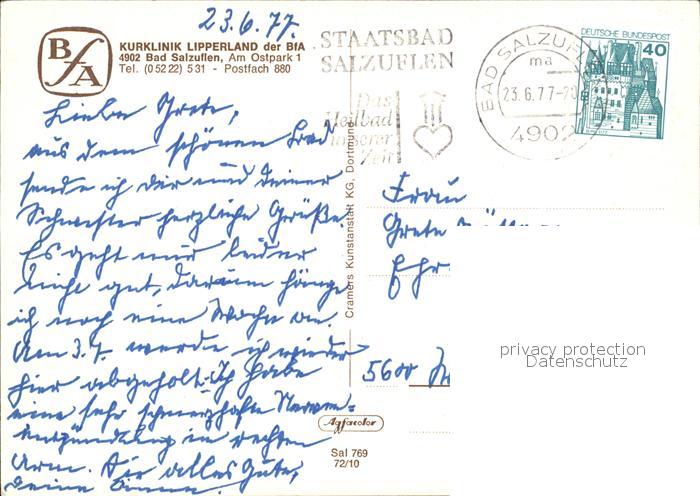 23.6.77.
BfA
KURKLINIK LIPPERLAND der BfA
4902 Bad Salzuflen, Am Ostpark 1
Tel. (05222) 531 - Postfach 880
STAATSBAD
SALZUFLEN
Das
Heilbad
unserer
Zeit
BAD SALZUFLEN
ma
23.6.77-20
4902
DEUTSCHE BUNDESPOST
40
Liebe Grete,
aus dem schönen Bad
sende ich dir und deiner
Schwester herzliche Grüße.
Es geht mir leider
nicht gut, darum hänge
ich noch eine Woche an.
Am 3.7. werde ich wieder
hier abgeholt. Ich habe
eine sehr schmerzhafte Nerven=
entzündung im rechten
Arm. Dir alles Gute,
deine
Frau
Grete
Ehr
5600
Cramers Kunstanstalt KG, Dortmund
Agfacolor
Sal 769
72/10
privacy protection
Datenschutz